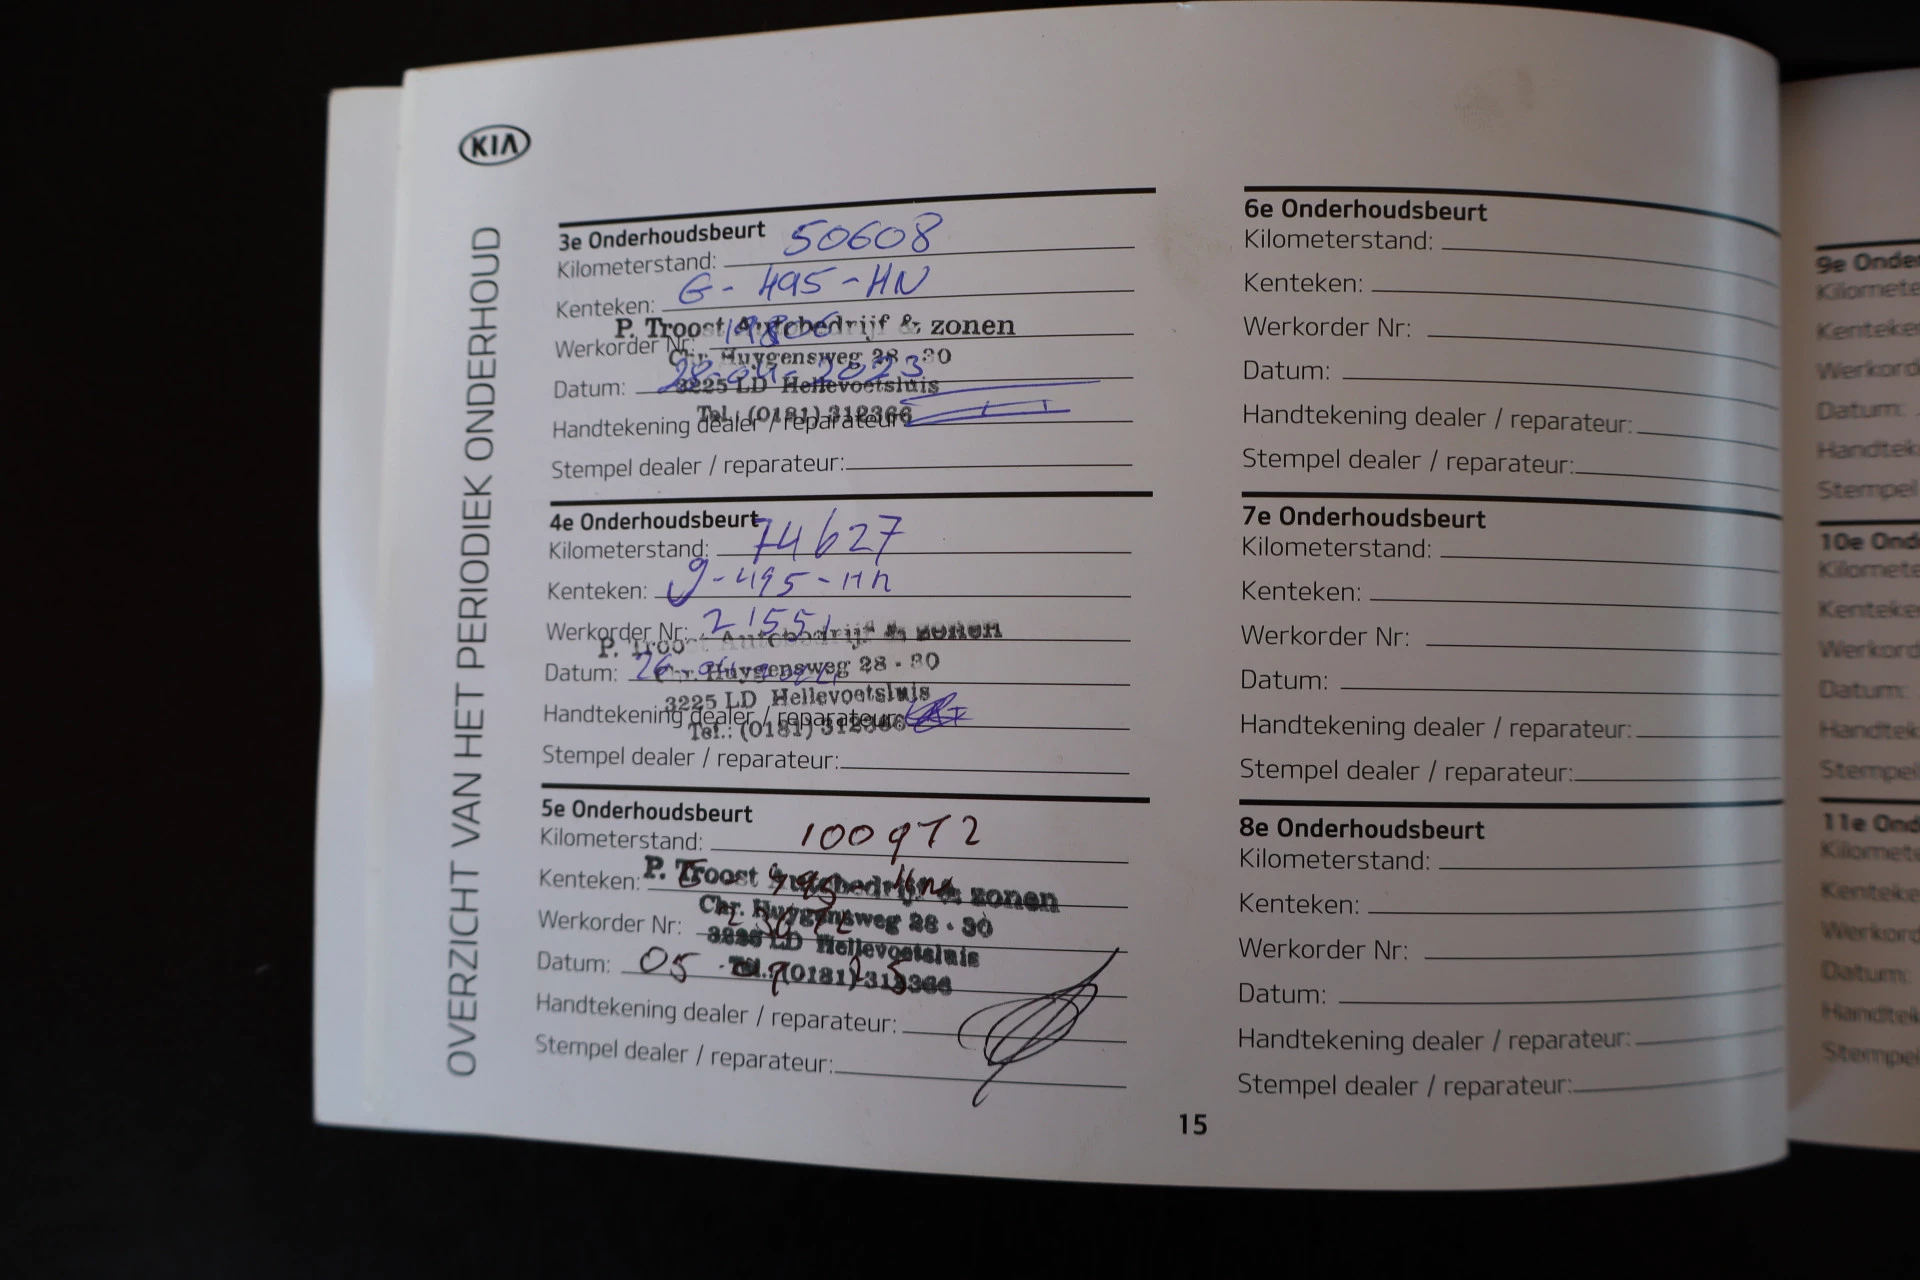 KIA
OVERZICHT VAN HET PERIODIEK ONDERHOUD
3e Onderhoudsbeurt
Kilometerstand: 50608
Kenteken: G-495-HN
P. Troost Autobedrijf & zonen
Werkorder Nr:
Chr. Huygensweg 28 - 30
Datum: 28-04-2023
3225 LD Hellevoetsluis
Tel.: (0181) 312366
Handtekening dealer / reparateur:
Stempel dealer / reparateur:
4e Onderhoudsbeurt
Kilometerstand: 74627
Kenteken: g-495-HN
Werkorder Nr: 21551
P. Troost Autobedrijf & zonen
Datum: 26
Chr. Huygensweg 28 - 30
3225 LD Hellevoetsluis
Handtekening dealer / reparateur:
Tel.: (0181) 312366
Stempel dealer / reparateur:
5e Onderhoudsbeurt
Kilometerstand: 100972
Kenteken:
P. Troost Autobedrijf & zonen
Chr. Huygensweg 28 - 30
Werkorder Nr:
3225 LD Hellevoetsluis
Datum: 05
Tel.: (0181) 312366
Handtekening dealer / reparateur:
Stempel dealer / reparateur:
6e Onderhoudsbeurt
Kilometerstand:
Kenteken:
Werkorder Nr:
Datum:
Handtekening dealer / reparateur:
Stempel dealer / reparateur:
7e Onderhoudsbeurt
Kilometerstand:
Kenteken:
Werkorder Nr:
Datum:
Handtekening dealer / reparateur:
Stempel dealer / reparateur:
8e Onderhoudsbeurt
Kilometerstand:
Kenteken:
Werkorder Nr:
Datum:
Handtekening dealer / reparateur:
Stempel dealer / reparateur:
15
9e Onder
Kilomete
Kenteke
Werkord
Datum:
Handtek
Stempel
10e Ond
Kilomete
Kenteke
Werkord
Datum:
Handtek
Stempel
11e Ond
Kilomete
Kenteke
Werkord
Datum:
Handtek
Stempel